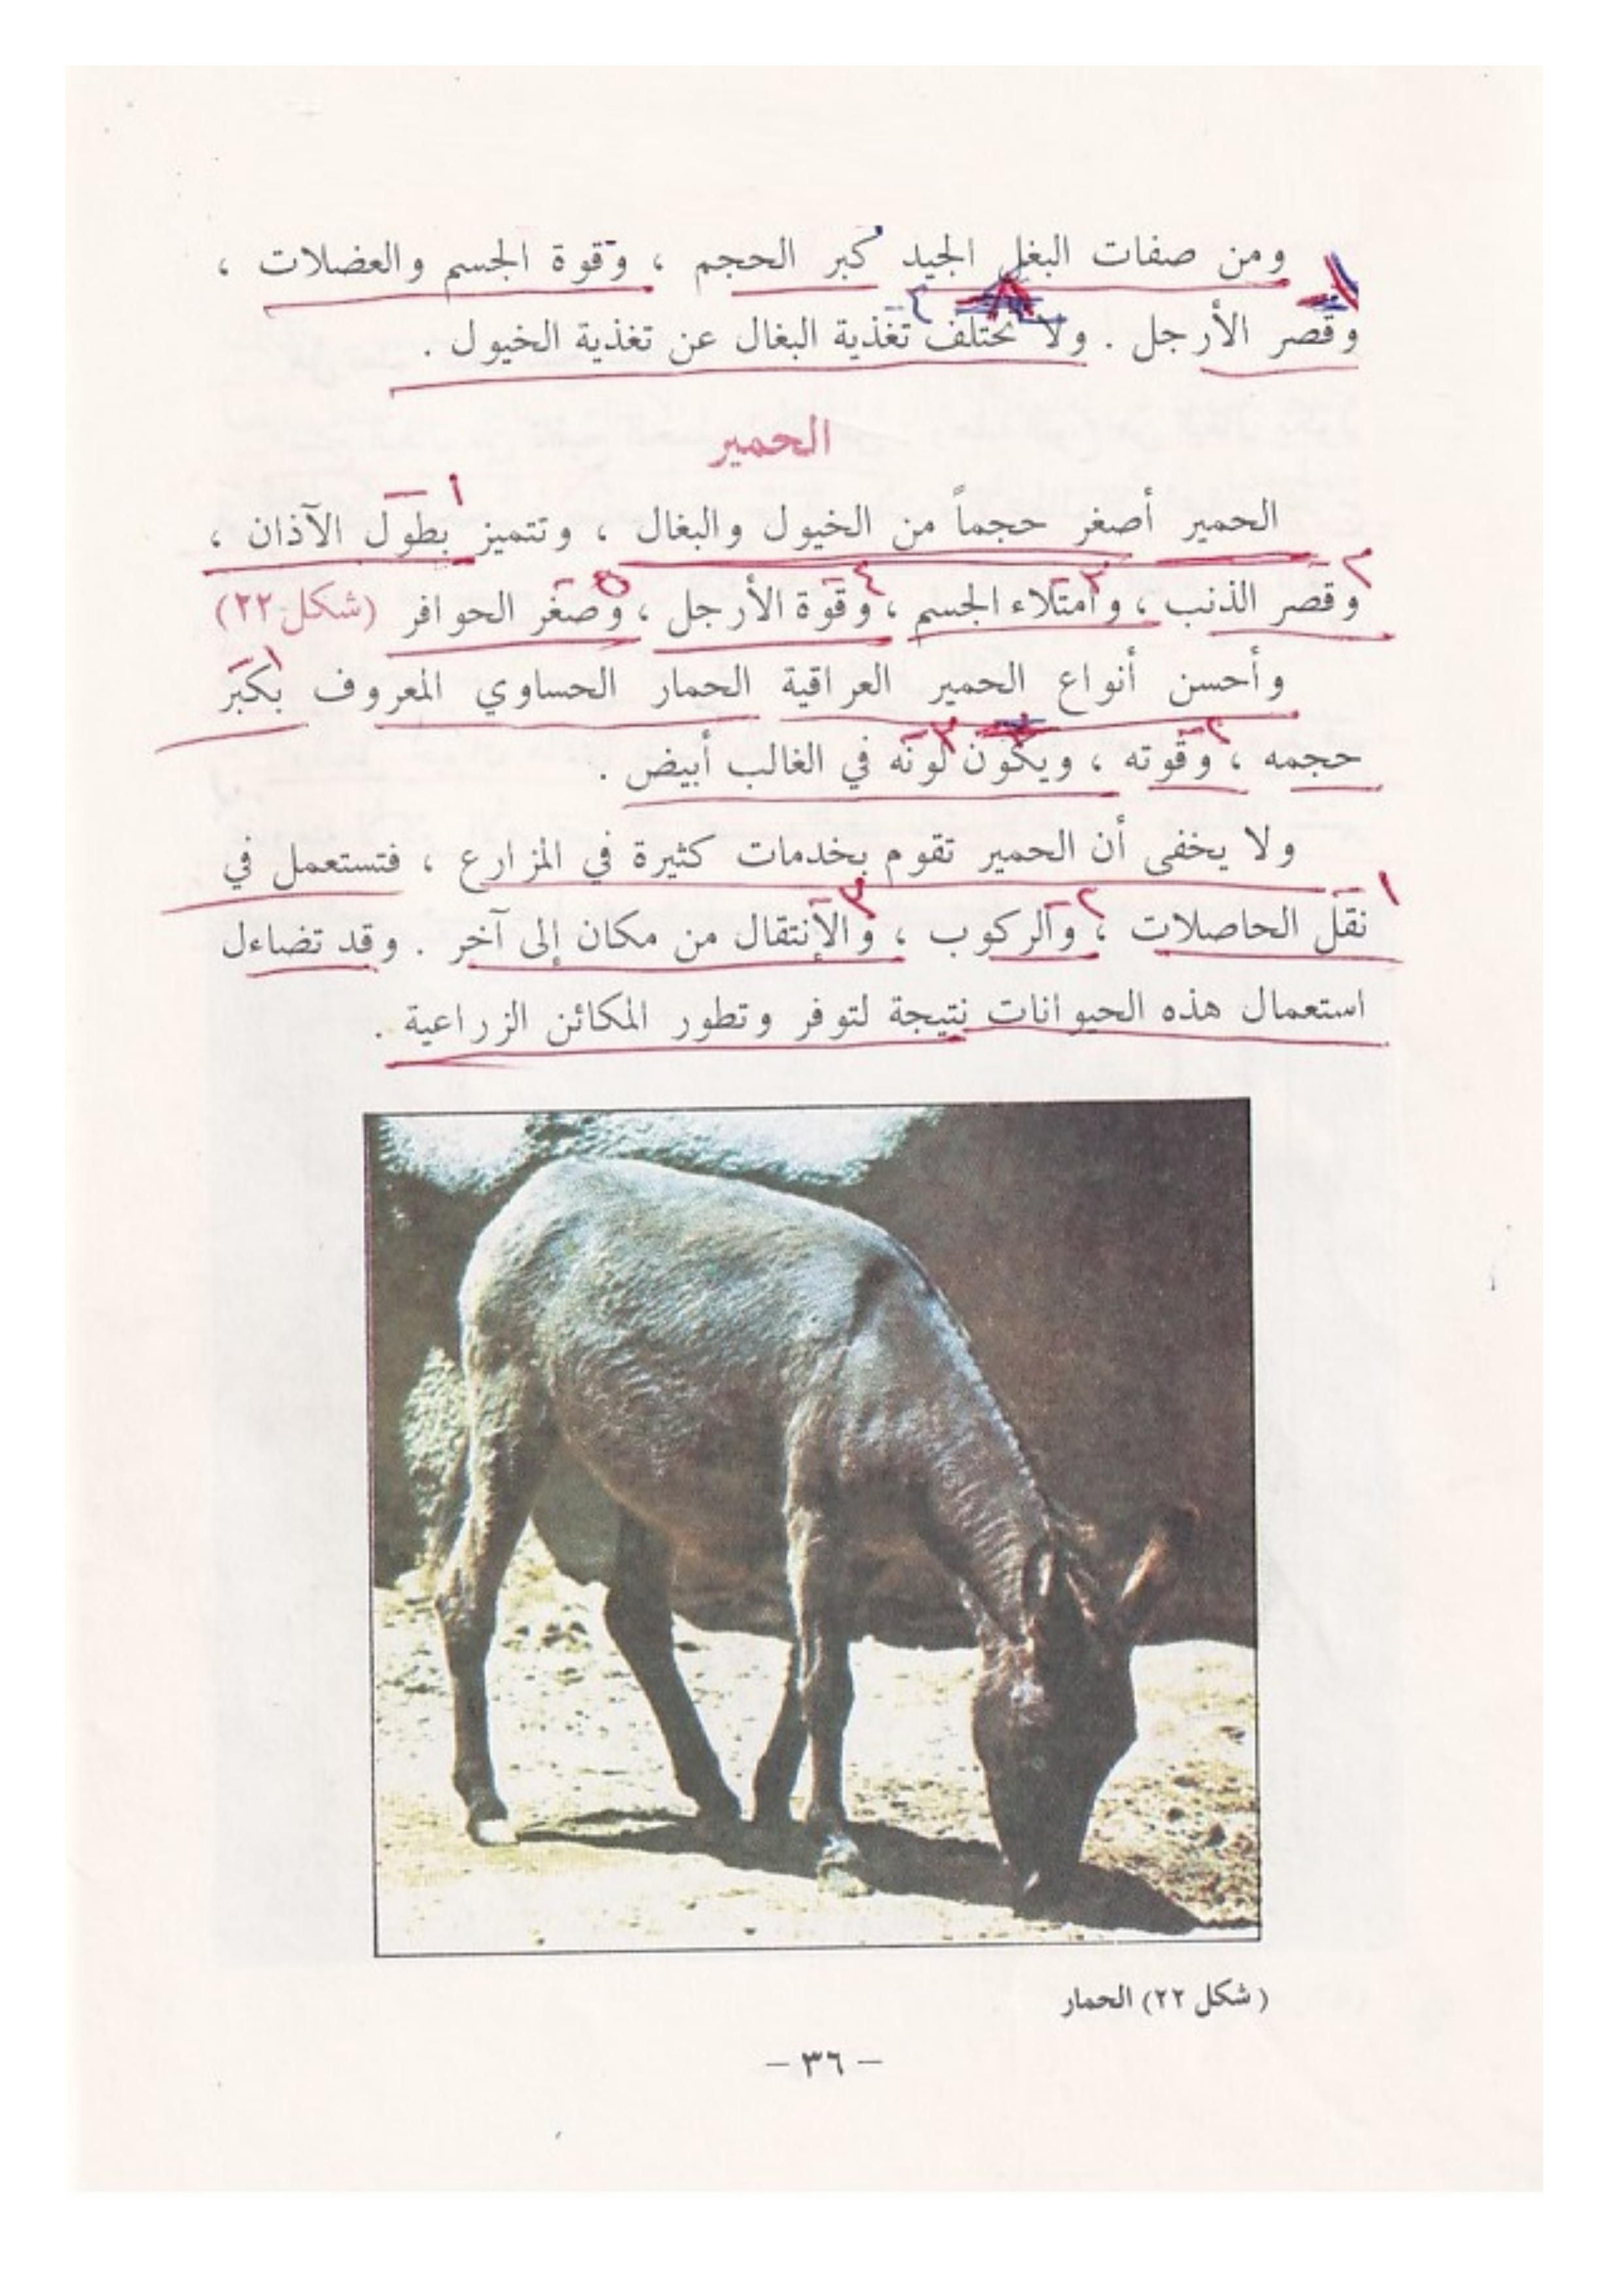 ومن صفات البغل الجيد كبر الحجم ، وقوة الجسم والعضلات ،
وقصر الأرجل . ولا تختلف تغذية البغال عن تغذية الخيول .
الحمير
الحمير أصغر حجماً من الخيول والبغال ، وتتميز بطول الآذان ،
وقصر الذنب ، وامتلاء الجسم ، وقوة الأرجل ، وصغر الحوافر (شكل-٢٢)
وأحسن أنواع الحمير العراقية الحمار الحساوي المعروف بكبر
حجمه ، وقوته ، ويكون لونه في الغالب أبيض .
ولا يخفى أن الحمير تقوم بخدمات كثيرة في المزارع ، فتستعمل في
نقل الحاصلات ، والركوب ، والإنتقال من مكان إلى آخر . وقد تضاءل
استعمال هذه الحيوانات نتيجة لتوفر وتطور المكائن الزراعية .
( شكل ٢٢) الحمار
– ٣٦ –